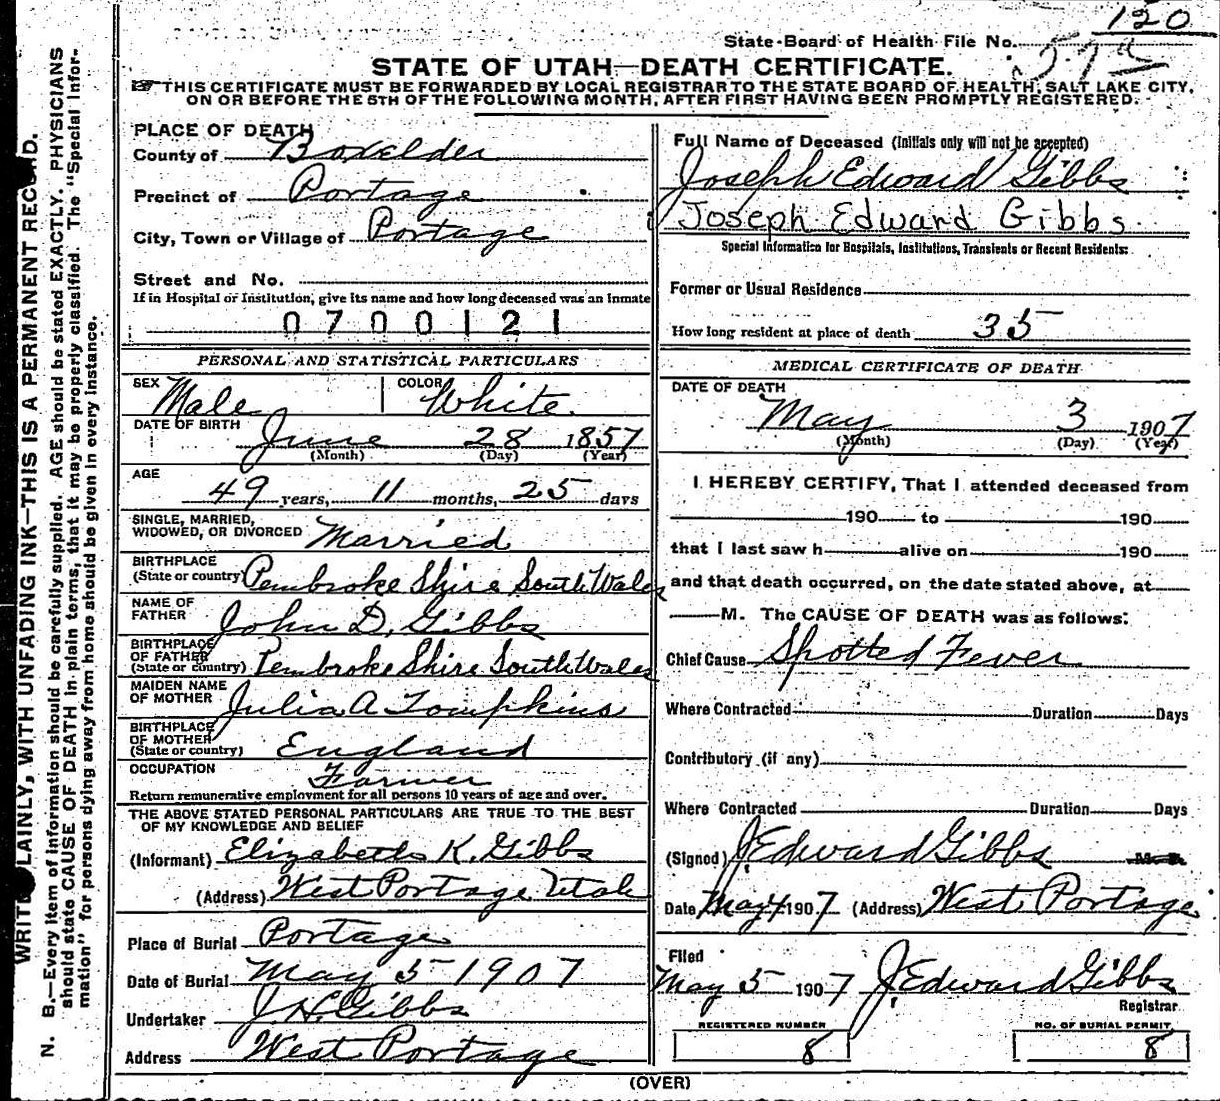 120
State Board of Health File No. 57 a
STATE OF UTAH—DEATH CERTIFICATE.
THIS CERTIFICATE MUST BE FORWARDED BY LOCAL REGISTRAR TO THE STATE BOARD OF HEALTH, SALT LAKE CITY,
ON OR BEFORE THE 5TH OF THE FOLLOWING MONTH, AFTER FIRST HAVING BEEN PROMPTLY REGISTERED.
PLACE OF DEATH
County of Boxelder
Precinct of Portage
City, Town or Village of Portage
Street and No.
If in Hospital or Institution, give its name and how long deceased was an inmate
0700121
PERSONAL AND STATISTICAL PARTICULARS
SEX Male COLOR White
DATE OF BIRTH
June 28 1857
(Month) (Day) (Year)
AGE
49 years, 11 months, 25 days
SINGLE, MARRIED,
WIDOWED, OR DIVORCED Married
BIRTHPLACE
(State or country) Pembroke Shire South Wales
NAME OF
FATHER John D. Gibbs
BIRTHPLACE
OF FATHER
(State or country) Pembroke Shire South Wales
MAIDEN NAME
OF MOTHER Julia A Tompkins
BIRTHPLACE
OF MOTHER
(State or country) England
OCCUPATION Farmer
Return remunerative employment for all persons 10 years of age and over.
THE ABOVE STATED PERSONAL PARTICULARS ARE TRUE TO THE BEST
OF MY KNOWLEDGE AND BELIEF
(Informant) Elizabeth K. Gibbs
(Address) West Portage Utah
Place of Burial Portage
Date of Burial May 5 1907
Undertaker J H Gibbs
Address West Portage
Full Name of Deceased (Initials only will not be accepted)
Joseph Edward Gibbs
Joseph Edward Gibbs
Special Information for Hospitals, Institutions, Transients or Recent Residents:
Former or Usual Residence
How long resident at place of death 35
MEDICAL CERTIFICATE OF DEATH
DATE OF DEATH
May 3 1907
(Month) (Day) (Year)
I HEREBY CERTIFY, That I attended deceased from
190 to 190
that I last saw h alive on 190
and that death occurred, on the date stated above, at
M. The CAUSE OF DEATH was as follows:
Chief Cause Spotted Fever
Where Contracted Duration Days
Contributory (if any)
Where Contracted Duration Days
(Signed) J. Edward Gibbs M. D.
Date May 4 1907 (Address) West Portage
Filed
May 5 1907 J. Edward Gibbs
Registrar
REGISTERED NUMBER
8
NO. OF BURIAL PERMIT
8
(OVER)
WRITE PLAINLY, WITH UNFADING INK—THIS IS A PERMANENT RECORD.
N. B.—Every item of information should be carefully supplied. AGE should be stated EXACTLY. PHYSICIANS
should state CAUSE OF DEATH in plain terms, that it may be properly classified. The "Special Infor-
mation" for persons dying away from home should be given in every instance.